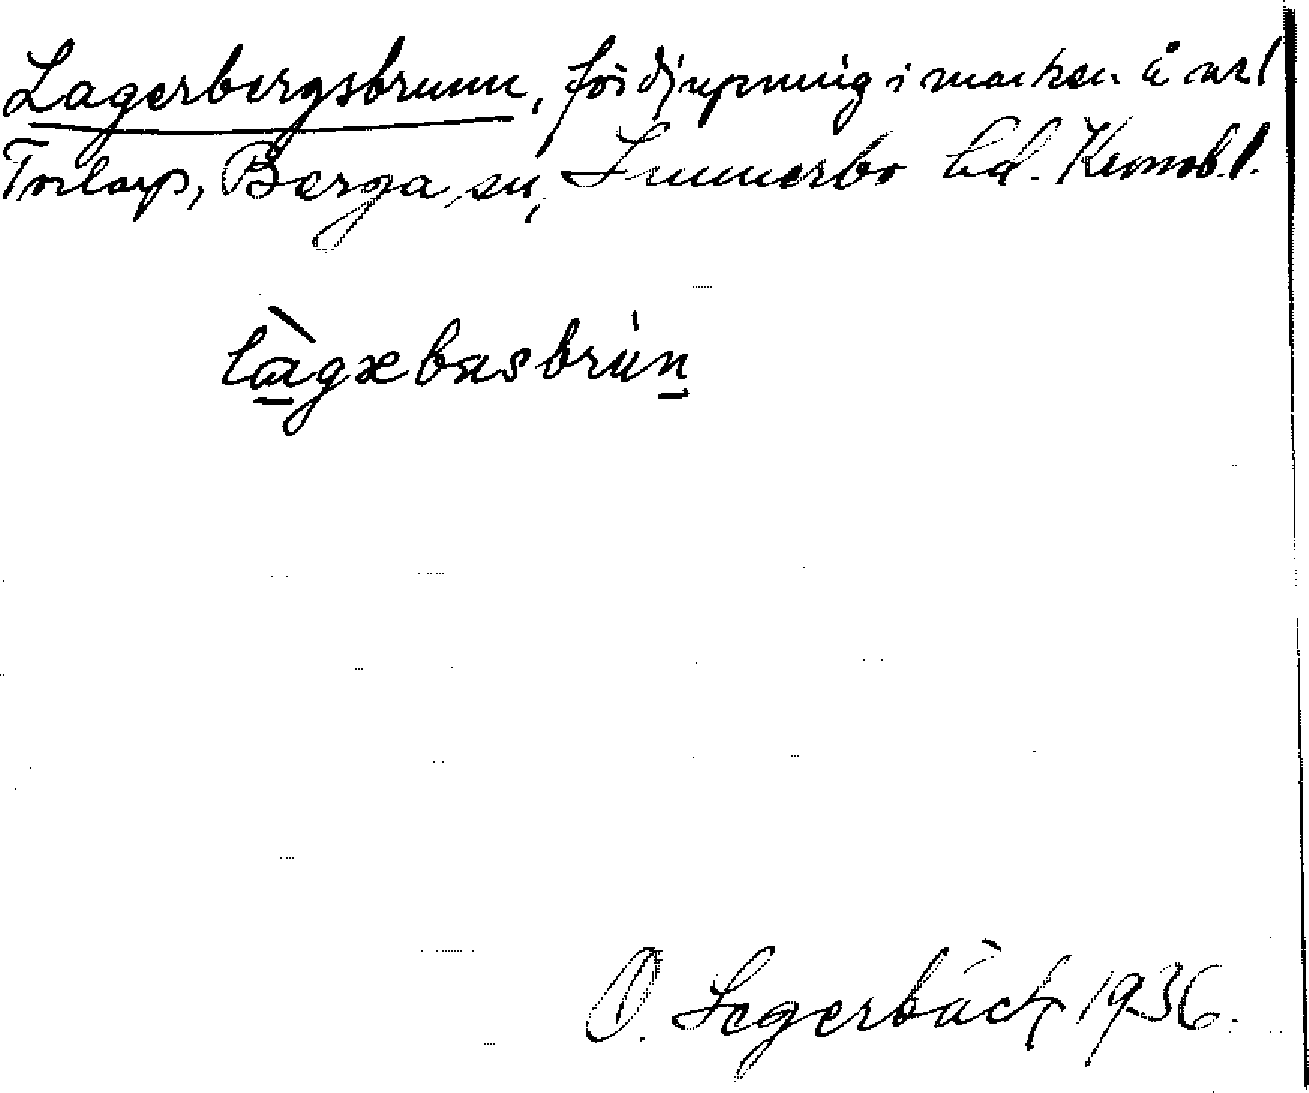 Lagerbergsbrunn, fördjupning i marken å urf
Torlarp, Berga sn, Sunnerbo hd. Kronob. l.
lágæbæsbrùn
O. Segerbäck 1936.